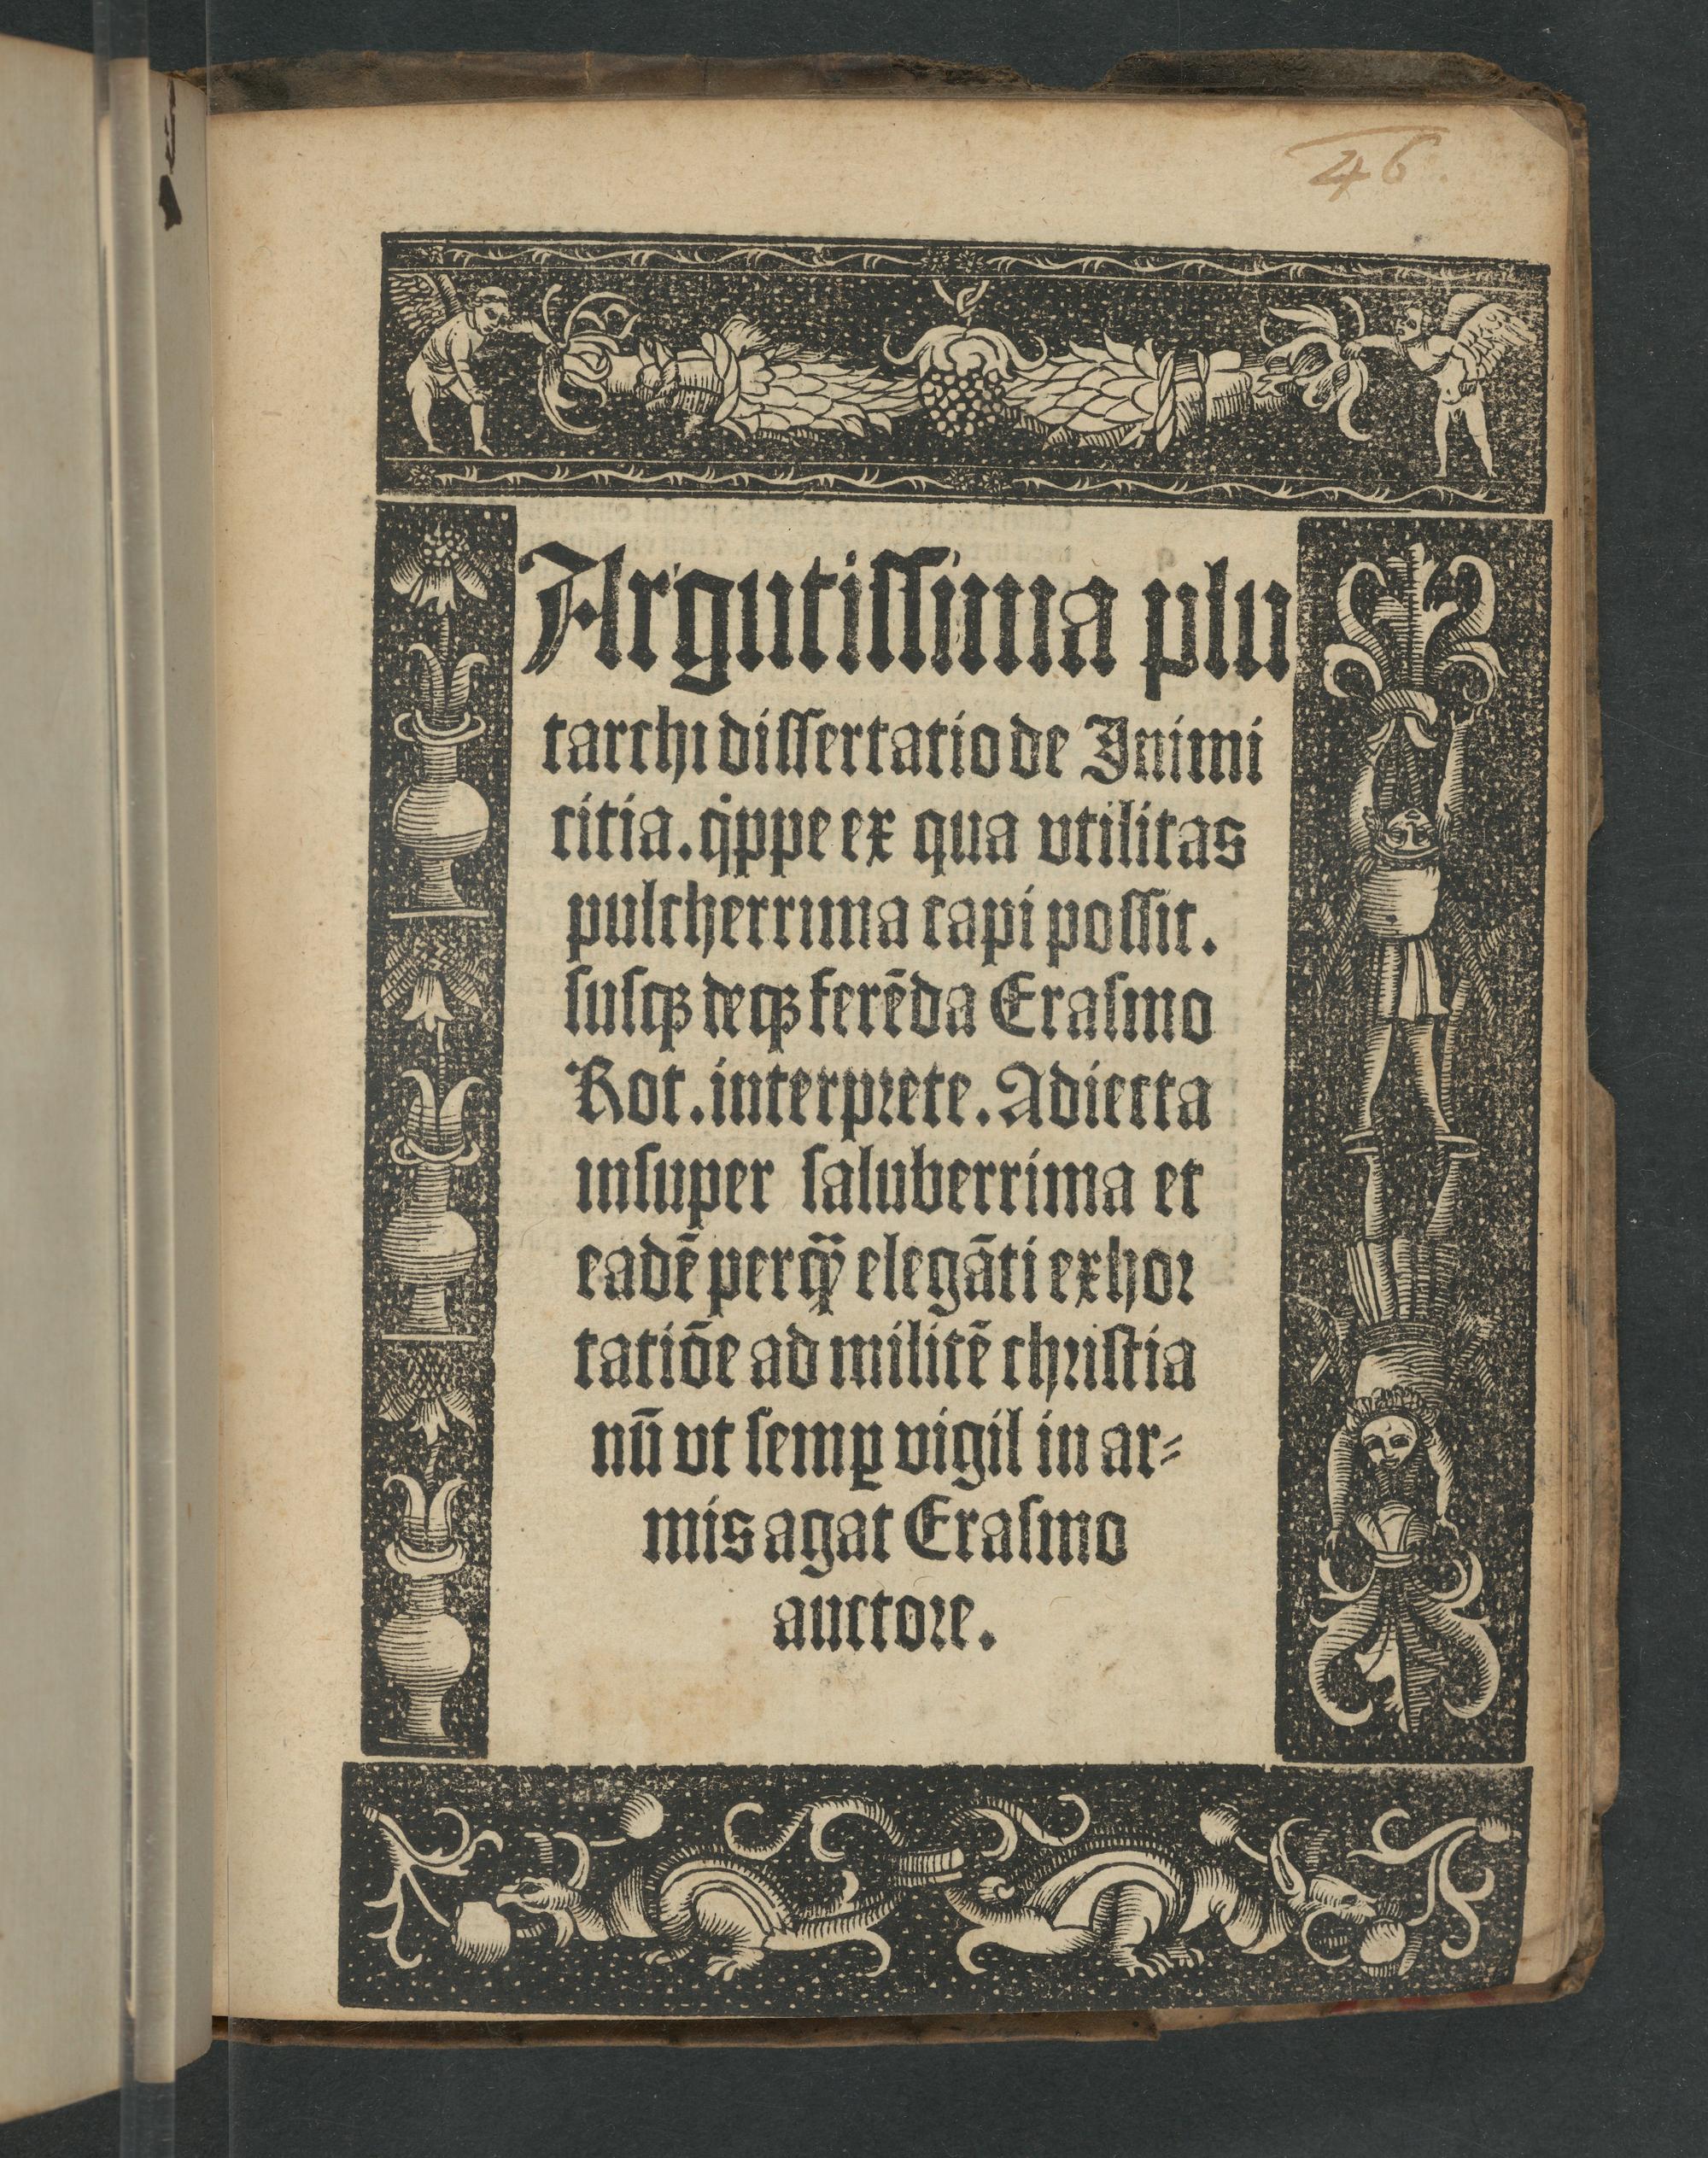 46
Argutissima plu
tarchi dissertatio de Inimi
citia. qͥppe ex qua vtilitas
pulcherrima capi possit.
susqꝫ deqꝫ ferēda Erasmo
Rot. interprete. Adiecta
insuper saluberrima et
eadē perqꝫ̄ elegāti exhor
tatiōe ad militē christia
nū vt semꝑ vigil in ar⸗
mis agat Erasmo
auctore.